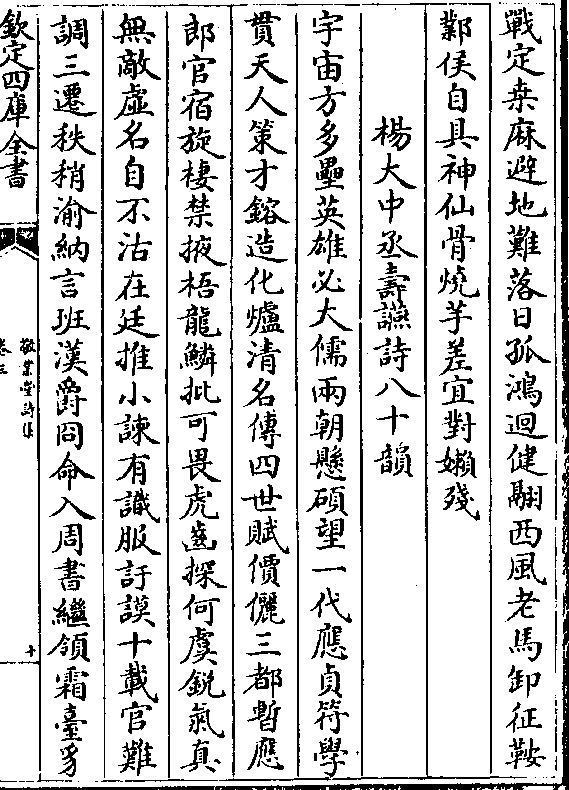 戰定桑麻避地難落日孤鴻迴健翮西風老馬卸征鞍
鄴侯自具神仙骨燒芋差宜對嬾殘
楊大中丞壽讌詩八十韻
宇宙方多壘英雄必大儒兩朝懸碩望一代應貞符學
貫天人策才鎔造化爐清名傳四世賦價儷三都暫應
郎官宿旋棲禁掖梧龍鱗批可畏虎齒探何虞銳氣真
無敵虛名自不沽在廷推小諫有識服訏謨十載官難
調三遷秩稍渝納言班漢爵冏命入周書繼領霜臺豸
欽定四庫全書
敬業堂詩集
卷三
十